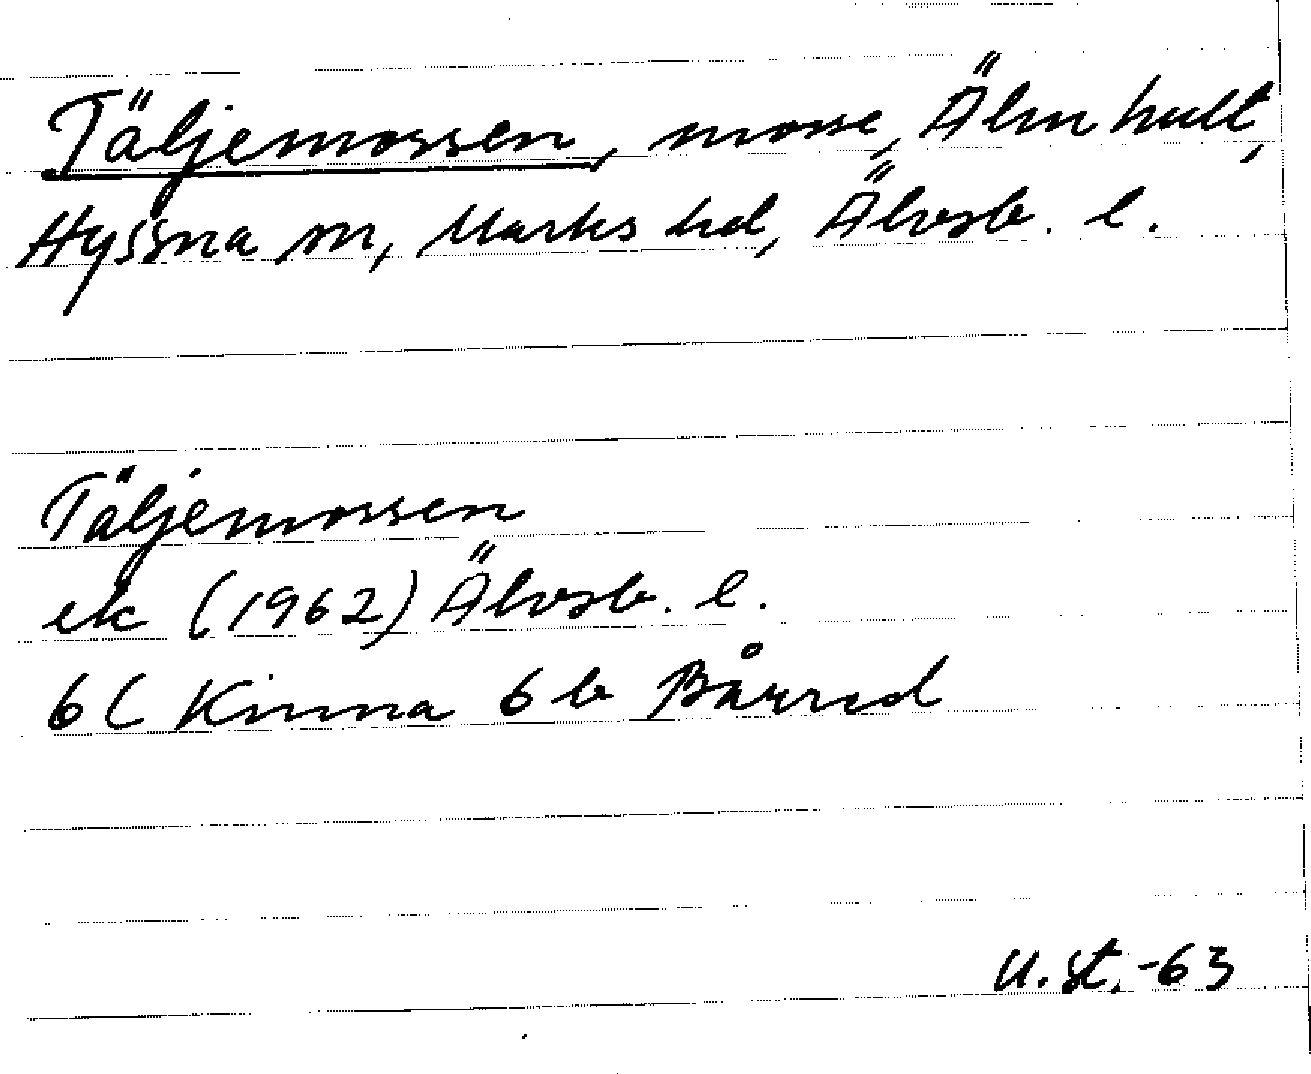 Täljemossen, mosse, Älmhult,
Hyssna sn, Marks hd, Älvsb. l.
Täljemossen
ek (1962) Älvsb. l.
6C Kinna 6 b Båsred
U.St.-63